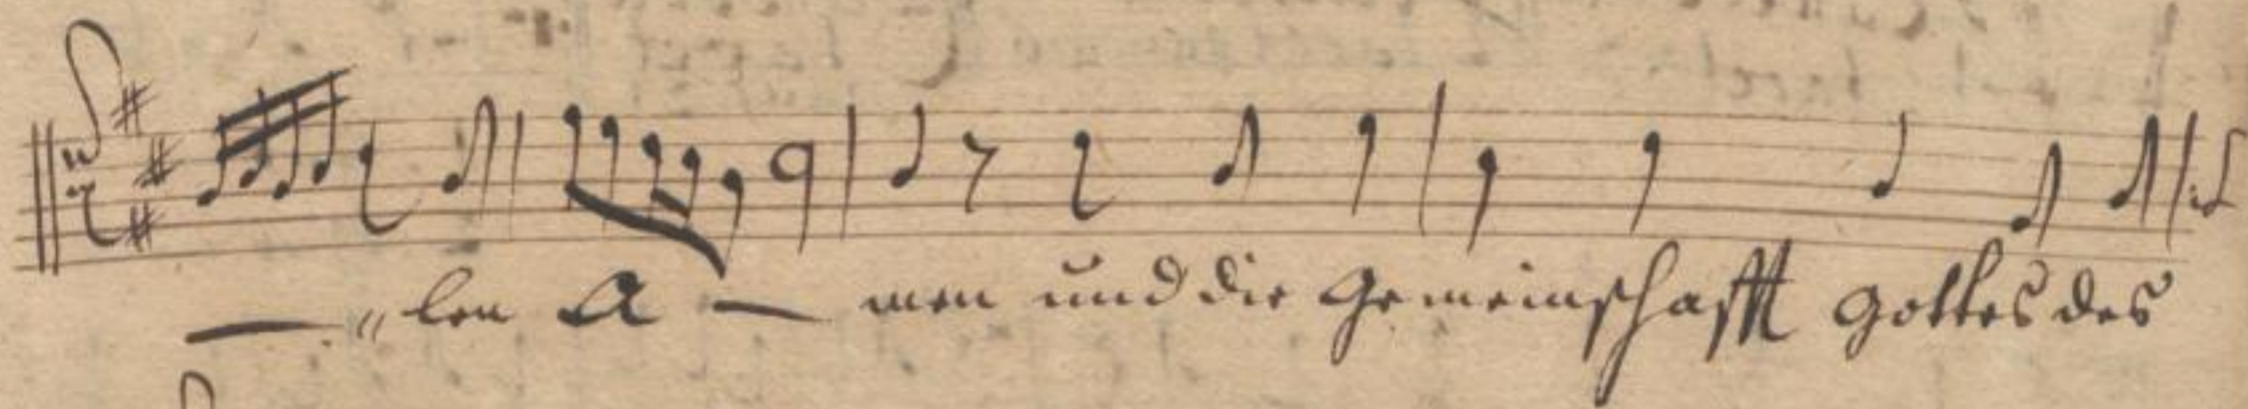 — „len A — men und die Gemeinschafft Gottes des